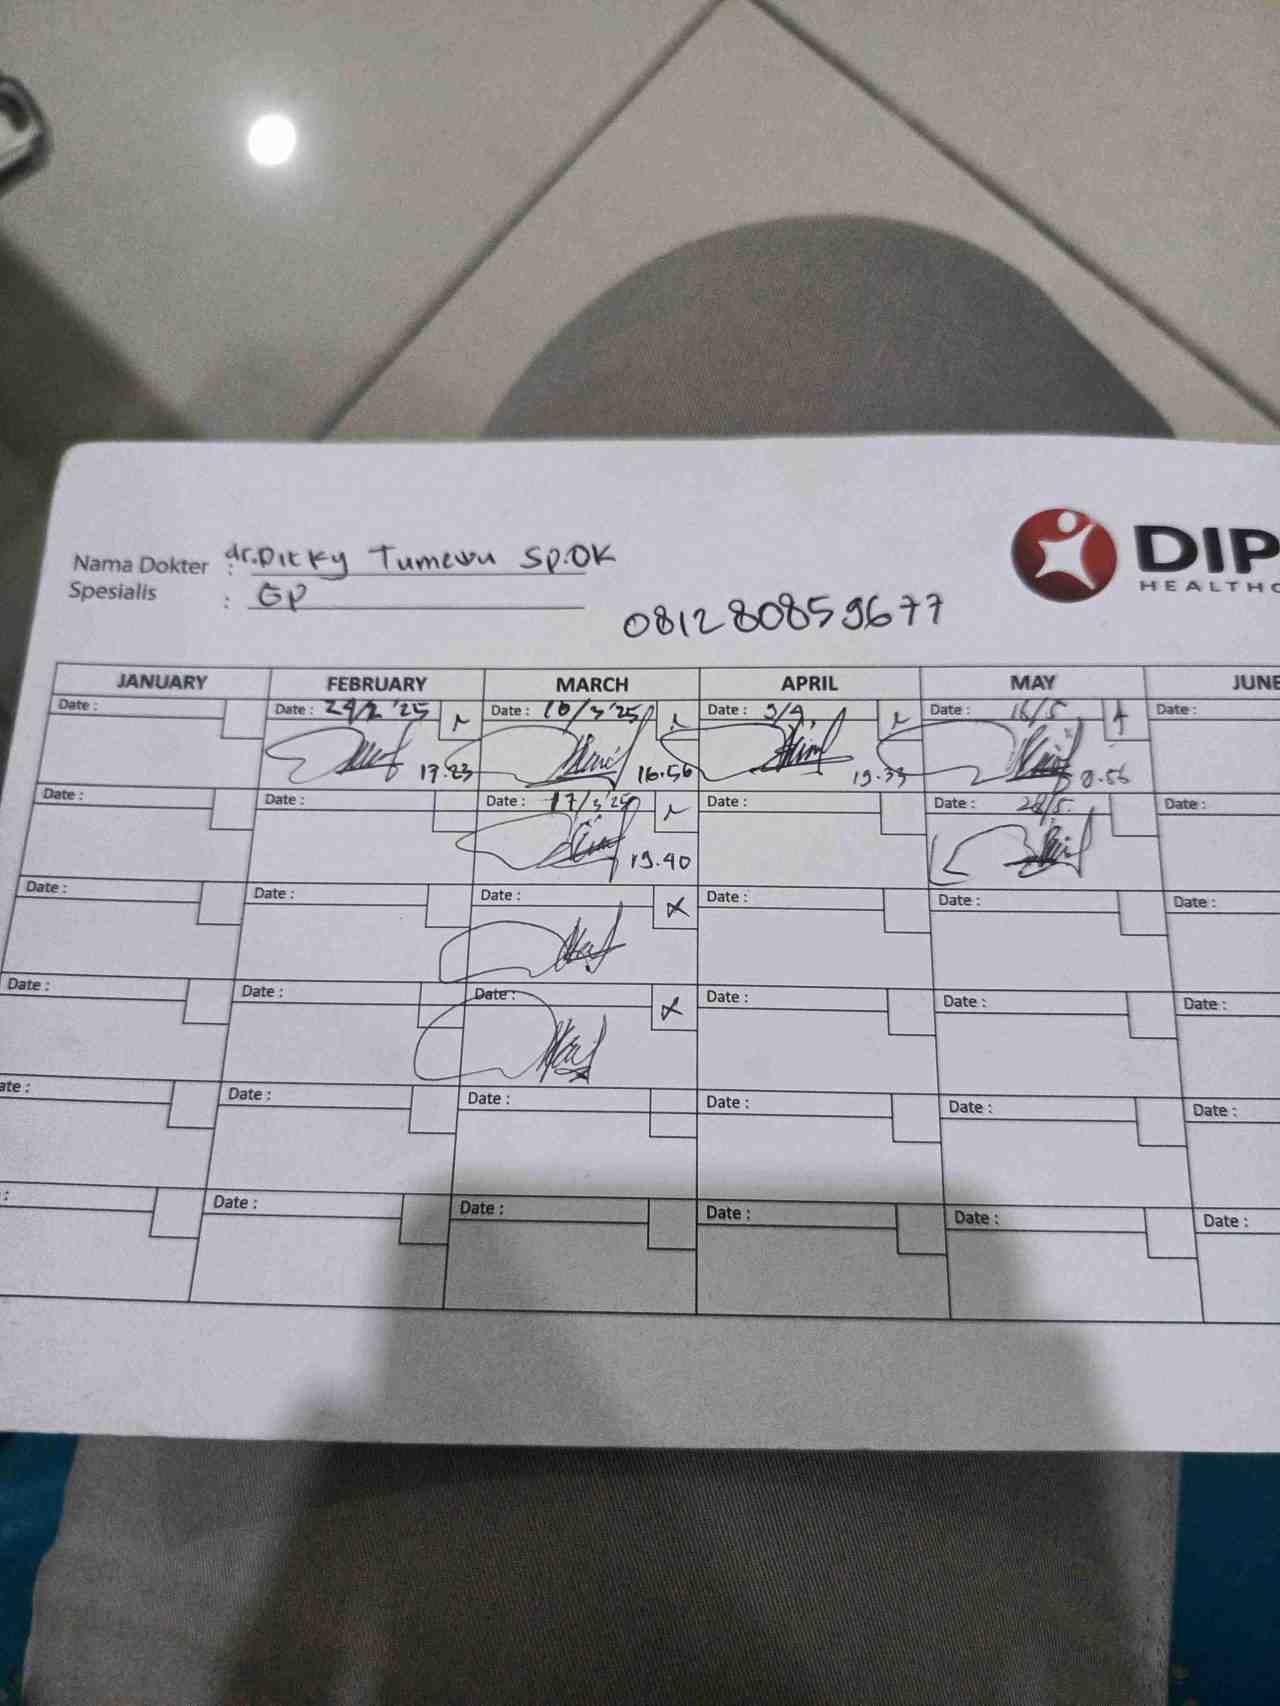 Nama Dokter : dr.Dicky Tumewu Sp.OK
DIP
HEALTHC
Spesialis : GP
081280859677
JANUARY FEBRUARY MARCH APRIL MAY JUNE
Date : Date : 24/2 '25 Date : 10/3 '25 Date : 9/4 Date : 16/5 Date :
17.23 16.56 19.33
Date : Date : Date : 17/3 '25 Date : Date : Date :
19.40
Date : Date : Date : Date : Date : Date :
Date : Date : Date : Date : Date : Date :
ate : Date : Date : Date : Date : Date :
: Date : Date : Date : Date : Date :